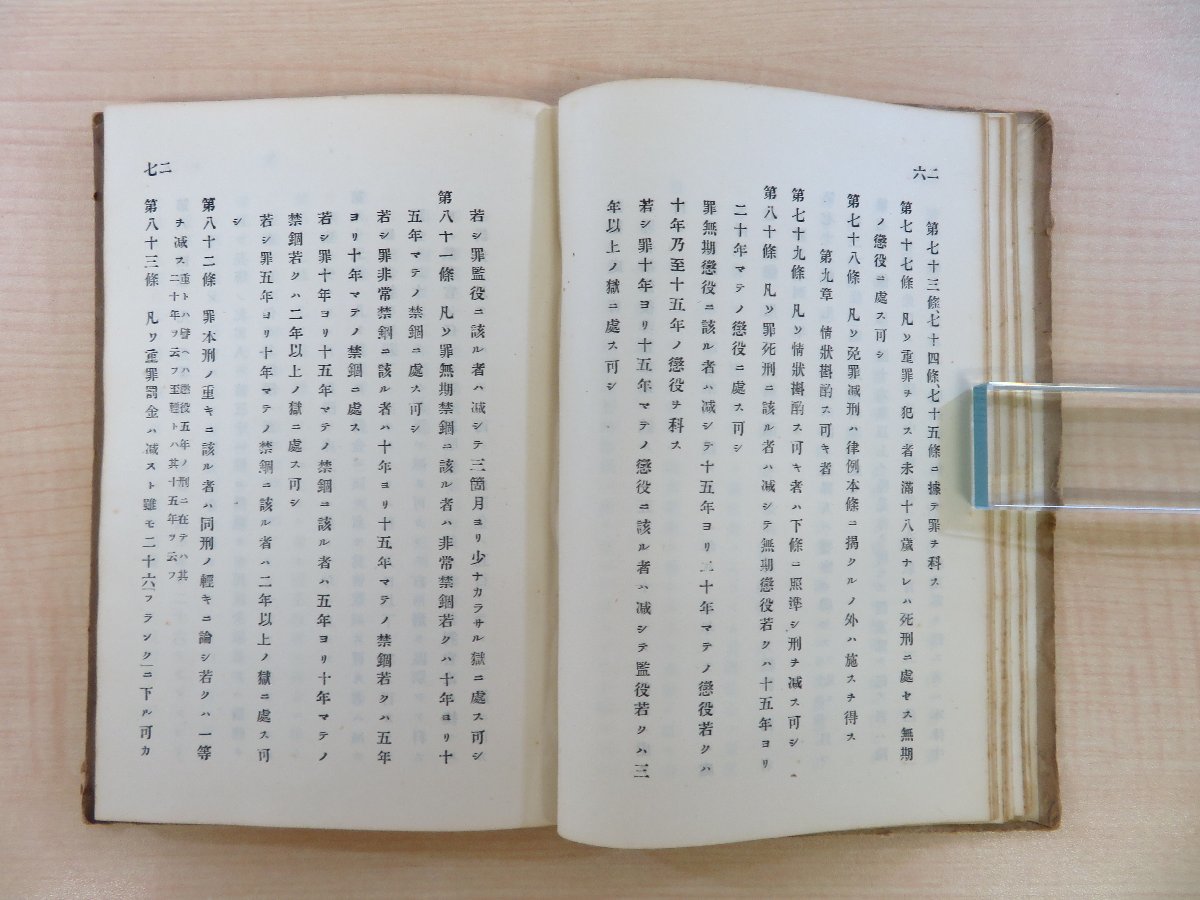 二六
第七十三條、七十四條、七十五條ニ據テ罪ヲ科ス
第七十七條 凡ソ重罪ヲ犯ス者未滿十八歲ナレハ死刑ニ處セス無期
ノ懲役ニ處ス可シ
第七十八條 凡ソ宛罪減刑ハ律例本條ニ揭クルノ外ハ施スヲ得ス
第九章 情狀斟酌ス可キ者
第七十九條 凡ソ情狀斟酌ス可キ者ハ下條ニ照準シ刑ヲ减ス可シ
第八十條 凡ソ罪死刑ニ該ル者ハ减シテ無期懲役若クハ十五年ヨリ
二十年マテノ懲役ニ處ス可シ
罪無期懲役ニ該ル者ハ减シテ十五年ヨリ二十年マテノ懲役若クハ
十年乃至十五年ノ懲役ヲ科ス
若シ罪十年ヨリ十五年マテノ懲役ニ該ル者ハ减シテ監役若クハ三
年以上ノ獄ニ處ス可シ
二七
若シ罪監役ニ該ル者ハ减シテ三箇月ヨリ少ナカラサル獄ニ處ス可シ
第八十一條 凡ソ罪無期禁錮ニ該ル者ハ非常禁錮若クハ十年ヨリ十
五年マテノ禁錮ニ處ス可シ
若シ罪非常禁錮ニ該ル者ハ十年ヨリ十五年マテノ禁錮若クハ五年
ヨリ十年マテノ禁錮ニ處ス
若シ罪十年ヨリ十五年マテノ禁錮ニ該ル者ハ五年ヨリ十年マテノ
禁錮若クハ二年以上ノ獄ニ處ス可シ
若シ罪五年ヨリ十年マテノ禁錮ニ該ル者ハ二年以上ノ獄ニ處ス可
シ
第八十二條 罪本刑ノ重キニ該ル者ハ同刑ノ輕キニ論シ若クハ一等
ヲ减ス 重トハ譬ヘハ懲役五年ノ刑ニ在テハ其
二十年ヲ云フ至輕トハ其十五年ヲ云フ
第八十三條 凡ソ重罪罰金ハ减スト雖モ二十六「フランク」ニ下ル可カ